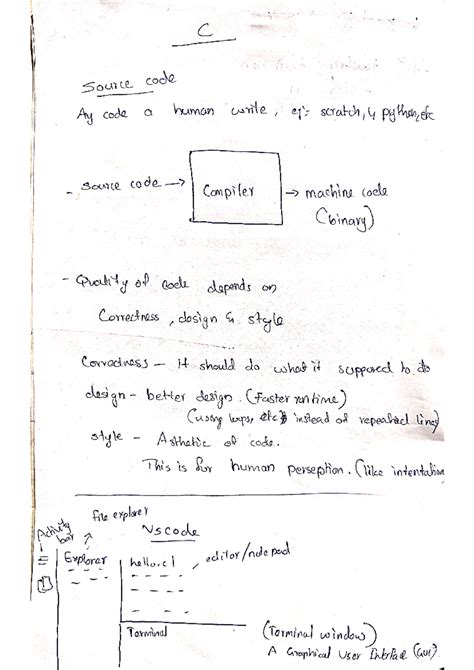 C
Source code
Ay code a human write, eg:- scratch, python, etc
- Source code → Compiler → machine code
(binary)
- Quality of code depends on
Correctness, design & style
Corradness - it should do what it suppared to do
design - better design. (Faster runtime)
(using loops, etc instead of repeated lines)
style - Asthetic of code.
This is for human perseption. (like intentation
file explorer
Activity bar
Vscode
Explorer
hello.c
editor/notepad
Terminal
(Terminal window)
A Graphical User Interface (GUI).